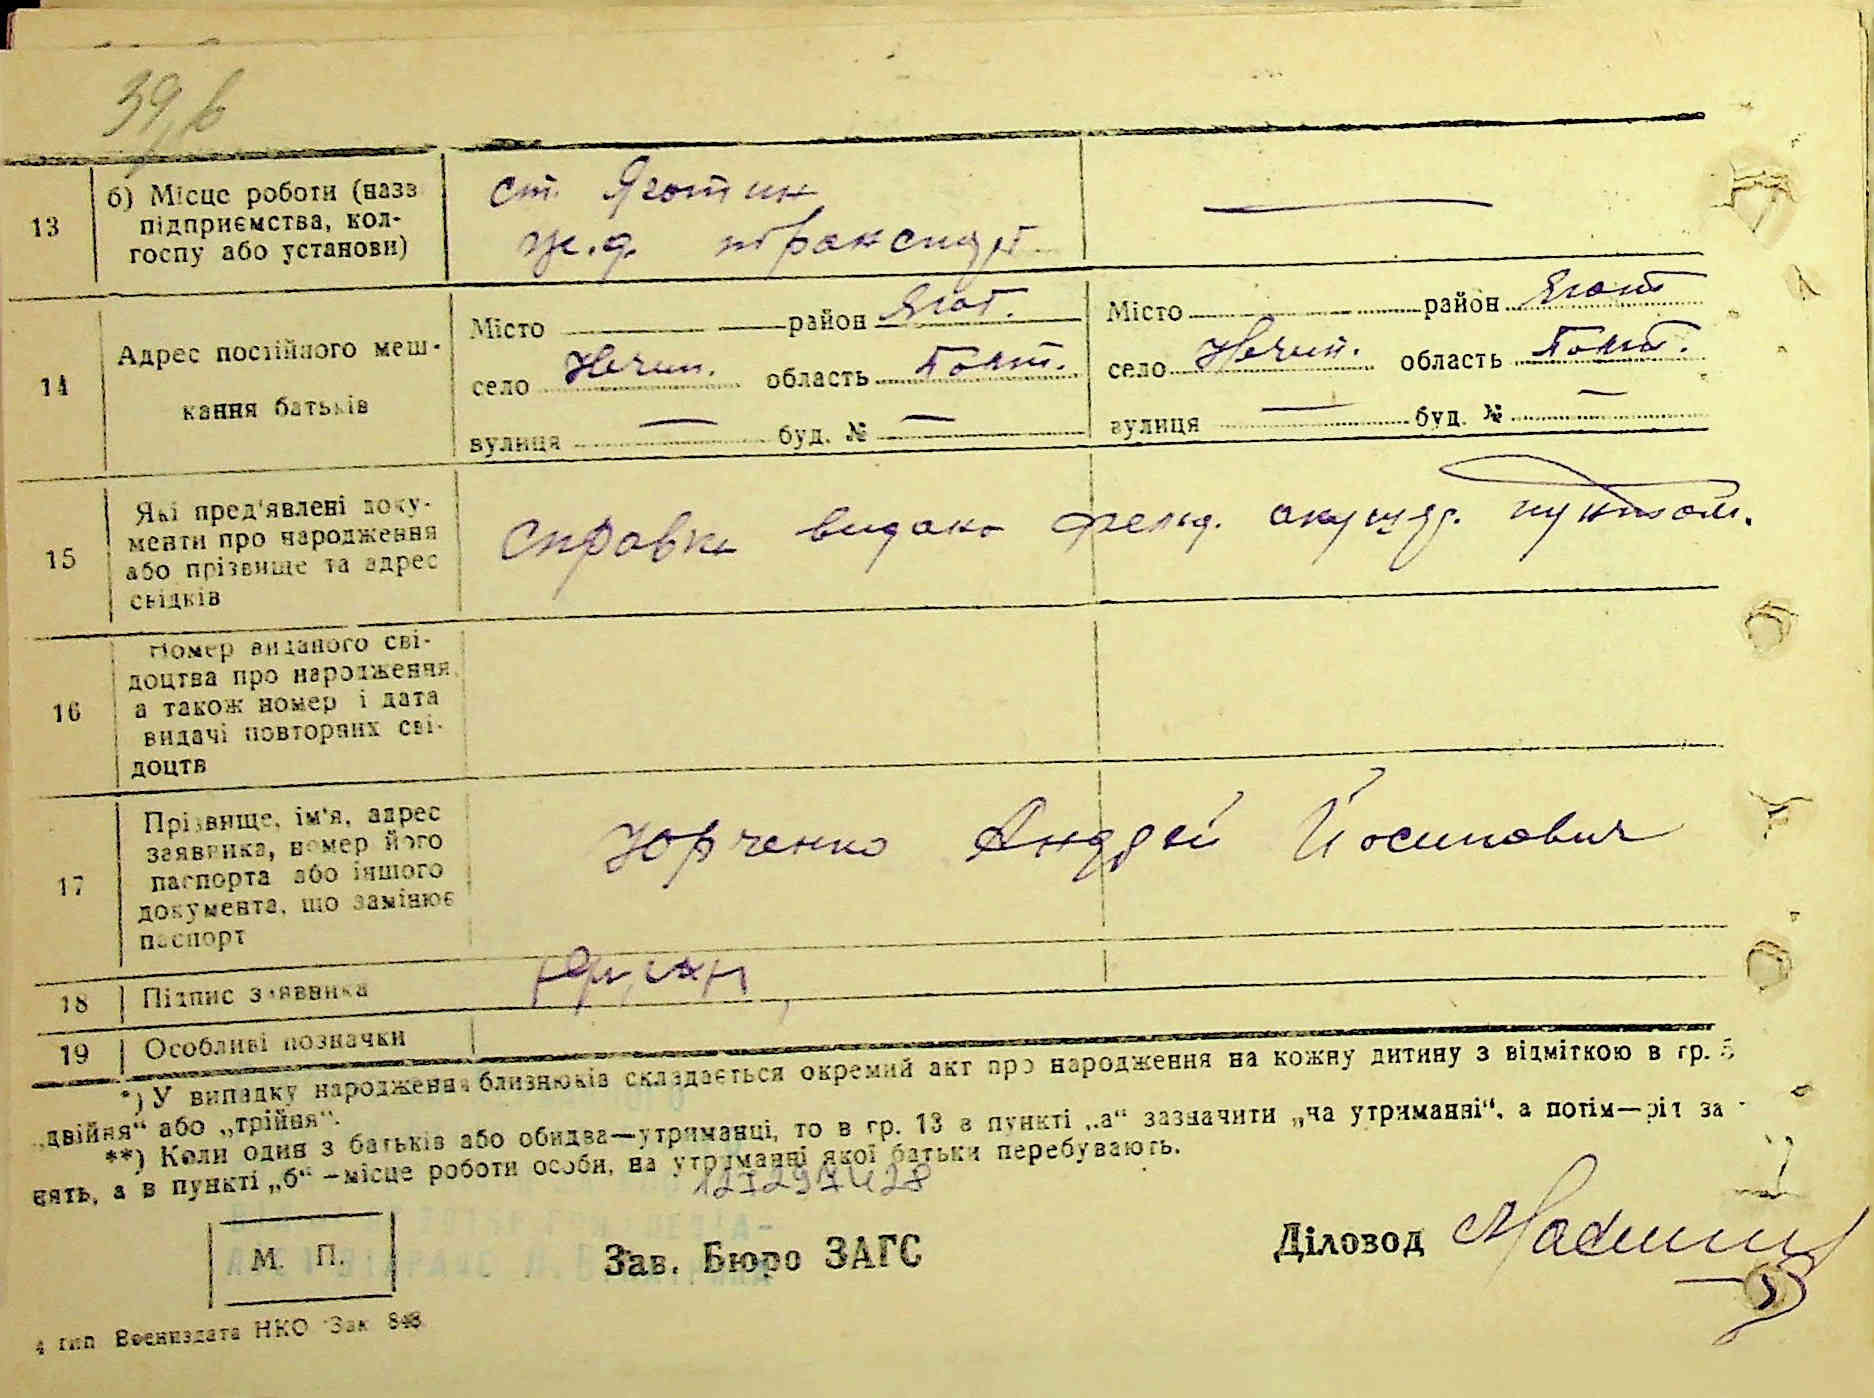 39,
13
б) Місце роботи (назв
підприємства, кол-
госпу або установи)
ст. Яготин
ж.д. транспорт
14
Адрес постійного меш-
кання батьків
Місто район Ягот.
село Нечип. область Полт.
вулиця — буд. № —
Місто район Ягот
село Нечип. область Полт.
вулиця — буд. № —
15
Які пред'явлені доку-
менти про народження
або прізвище та адрес
свідків
Справка видана фельд. акушер. пунктом.
16
Номер виданого сві-
доцтва про народження,
а також номер і дата
видачі повторних сві-
доцтв
17
Прізвище, ім'я, адрес
заявника, номер його
паспорта або іншого
документа, що замінює
паспорт
Юрченко Андрей Йосипович
18 Підпис заявника
19 Особливі позначки
*) У випадку народження близнюків складається окремий акт про народження на кожну дитину з відміткою в гр. 5
„двійня“ або „трійня“.
**) Коли один з батьків або обидва—утриманці, то в гр. 13 в пункті „а“ зазначити „на утриманні“, а потім—рід за
нять, а в пункті „б“ —місце роботи особи, на утриманні якої батьки перебувають.
127297428
М. П.
Зав. Бюро ЗАГС
Діловод
4 тип Воениздата НКО Зак 843